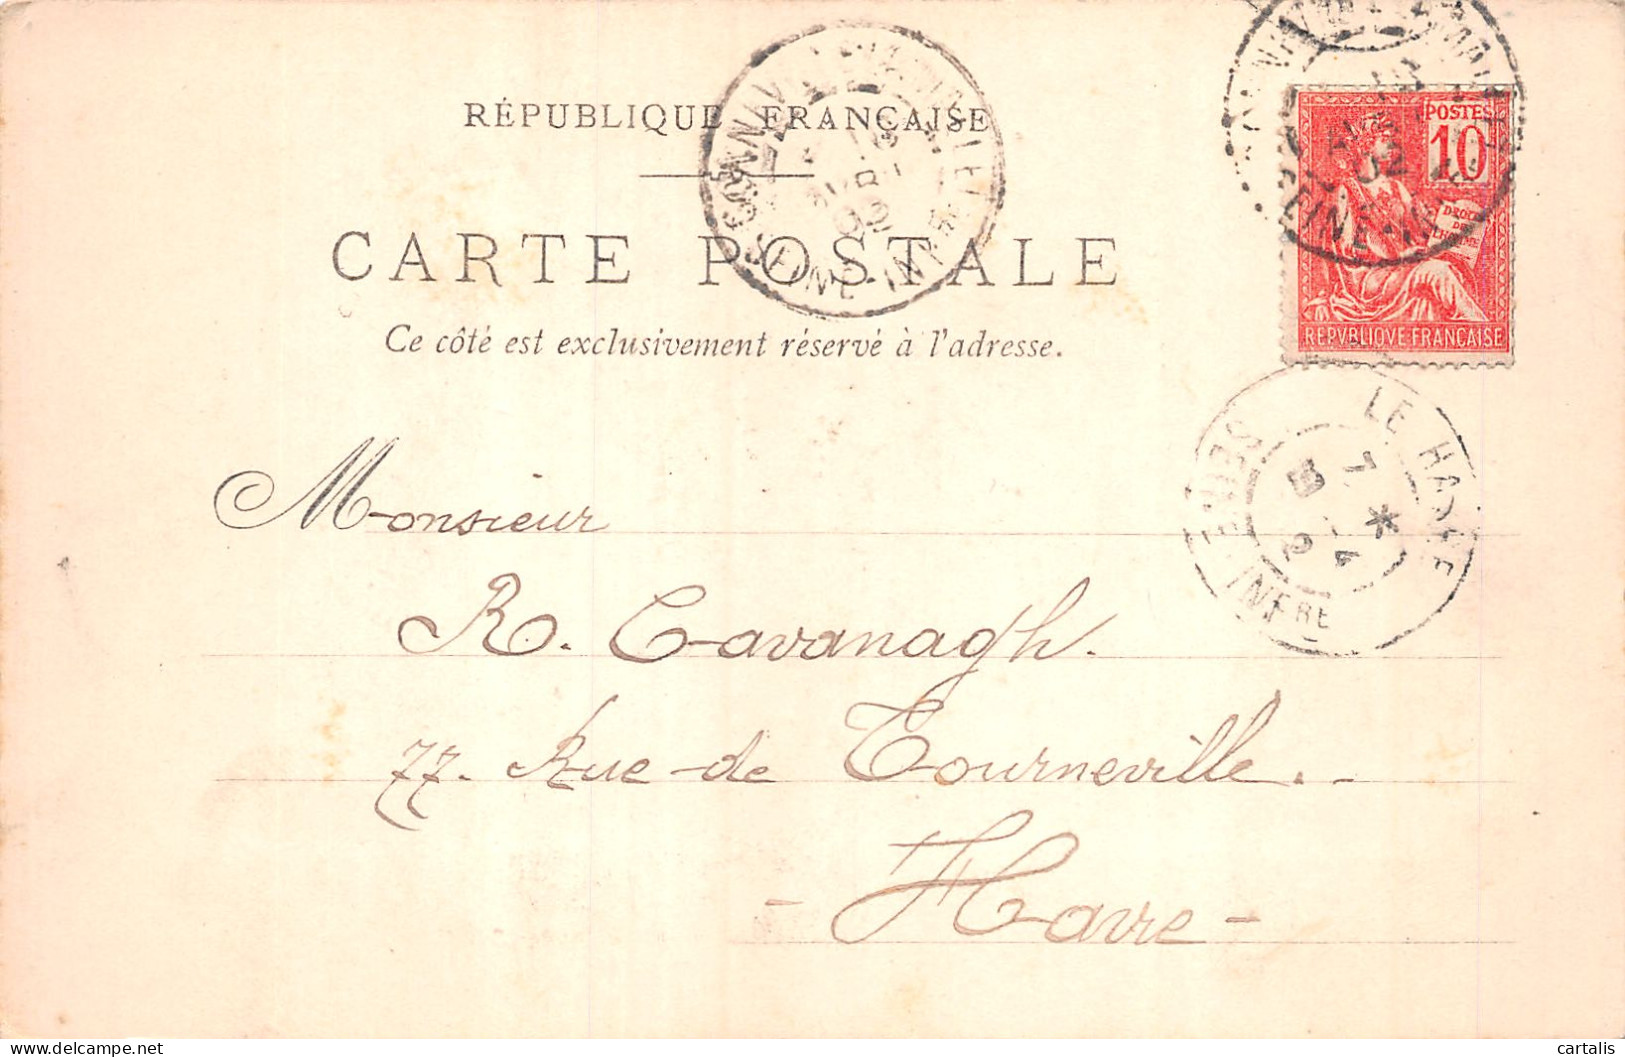 RÉPUBLIQUE FRANÇAISE
CARTE POSTALE
Ce côté est exclusivement réservé à l'adresse.
POSTES
10
DROITS
DE
L'HOMME
REPVBLIQVE FRANÇAISE
SEINE-INFRE
02
SEINE-INFRE
02
LE HAVRE
7 E
* 
4
2
SEINE INFRE
Monsieur
R. Cavanagh.
77. Rue de Tourneville.
- Havre -
cartalis